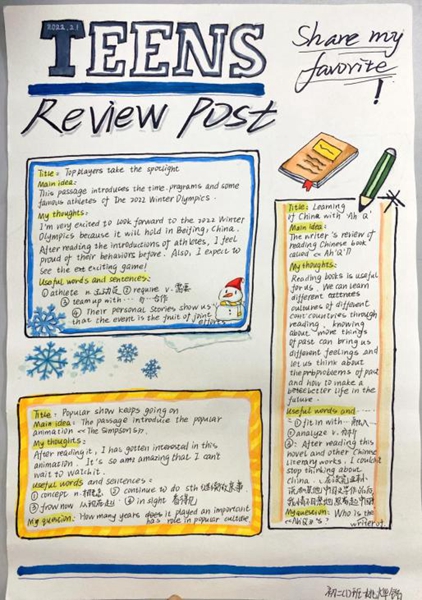 2022.2.1
TEENS
Review Post
Share my
favorite
!
Title: Top players take the spotlight
Main idea:
This passage introduces the time, programs and some
famous athletes of the 2022 Winter Olympics.
My thoughts:
I'm very excited to look forward to the 2022 Winter
Olympics because it will hold in Beijing, China.
After reading the introductions of athletes, I feel
proud of their behaviors before. Also, I expect to
see the exciting game!
Useful words and sentences:
① athlete n. 运动员 ② require v. 需要
③ team up with... 与…合作
④ Their personal stories show us
that the event is the fruit of joint
efforts.
Title: Popular show keeps going on
Main idea: The passage introduce the popular
animation <<The Simpsons>>.
My thoughts:
After reading it, I has gotten interested in this
animation. It's so amazing that I can't
wait to watch it.
Useful words and sentences:
① concept n. ② continue to do sth
③ from now 从现在起 ④ in sight 看得见
My question: How many years does it played an important
role in popular culture
Title: Learning
of China with 'Ah Q'
Main idea:
The writer's review of
reading Chinese book
called <<Ah Q>>
My thoughts:
Reading books is useful
for us. We can learn
different
cultures of different
countries through
reading, knowing
about more things
of past can bring us
different feelings and
let us think about
the problems of past
and how to make a
better life in the
future.
Useful words and ...
① fit in with
② analyze v. 分析
③: After reading this
novel and other Chinese
literary works, I couldn't
stop thinking about
China.
My question: Who is the
writer of
<<Ah Q>>?